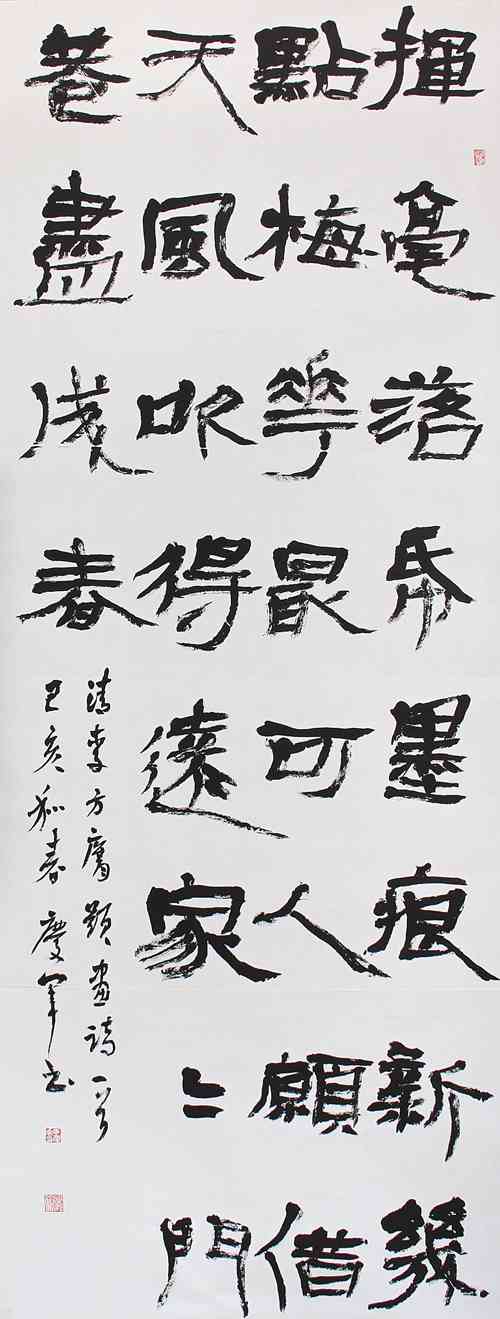 揮毫落帋墨痕新幾
點梅花最可人願借
天風吹得遠家〻門
巷盡成春
清李方膺題畫詩一首
己亥初春慶军书